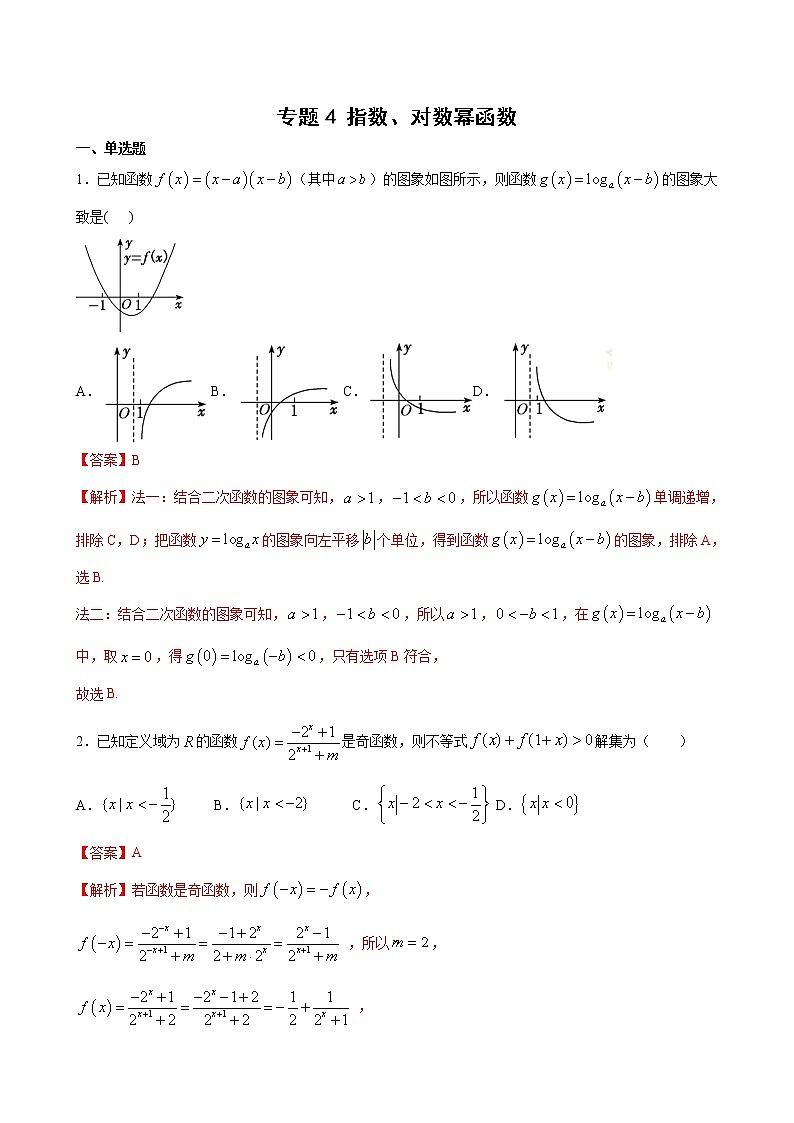 专题 4 指数、对数幂函数
一、单选题
1．已知函数 f(x)=(x−a)(x−b)（其中 a>b）的图象如图所示，则函数 g(x)=log_a(x−b) 的图象大
致是(    )
y
y=f(x)
−1 O 1 x
A． y O 1 x B． y O 1 x C． y O 1 x D． y O 1 x
【答案】B
【解析】法一：结合二次函数的图象可知，a>1，−1<b<0，所以函数 g(x)=log_a(x−b) 单调递增，
排除 C，D；把函数 y=log_a x 的图象向左平移 |b| 个单位，得到函数 g(x)=log_a(x−b) 的图象，排除 A，
选 B.
法二：结合二次函数的图象可知，a>1，−1<b<0，所以 a>1，0<−b<1，在 g(x)=log_a(x−b)
中，取 x=0，得 g(0)=log_a(−b)<0，只有选项 B 符合，
故选 B.
2．已知定义域为 R 的函数 f(x)=(−2^x+1)/(2^{x+1}+m) 是奇函数，则不等式 f(x)+f(1+x)>0 解集为（    ）
A．{x|x<−1/2} B．{x|x<−2} C．{x|−2<x<−1/2} D．{x|x<0}
【答案】A
【解析】若函数是奇函数，则 f(−x)=−f(x)，
f(−x)=(−2^{−x}+1)/(2^{−x+1}+m)=(−1+2^x)/(2+m·2^x)=(2^x−1)/(2^{x+1}+m)，所以 m=2，
f(x)=(−2^x+1)/(2^{x+1}+2)=(−2^x−1+2)/(2^{x+1}+2)=−1/2+1/(2^x+1)，